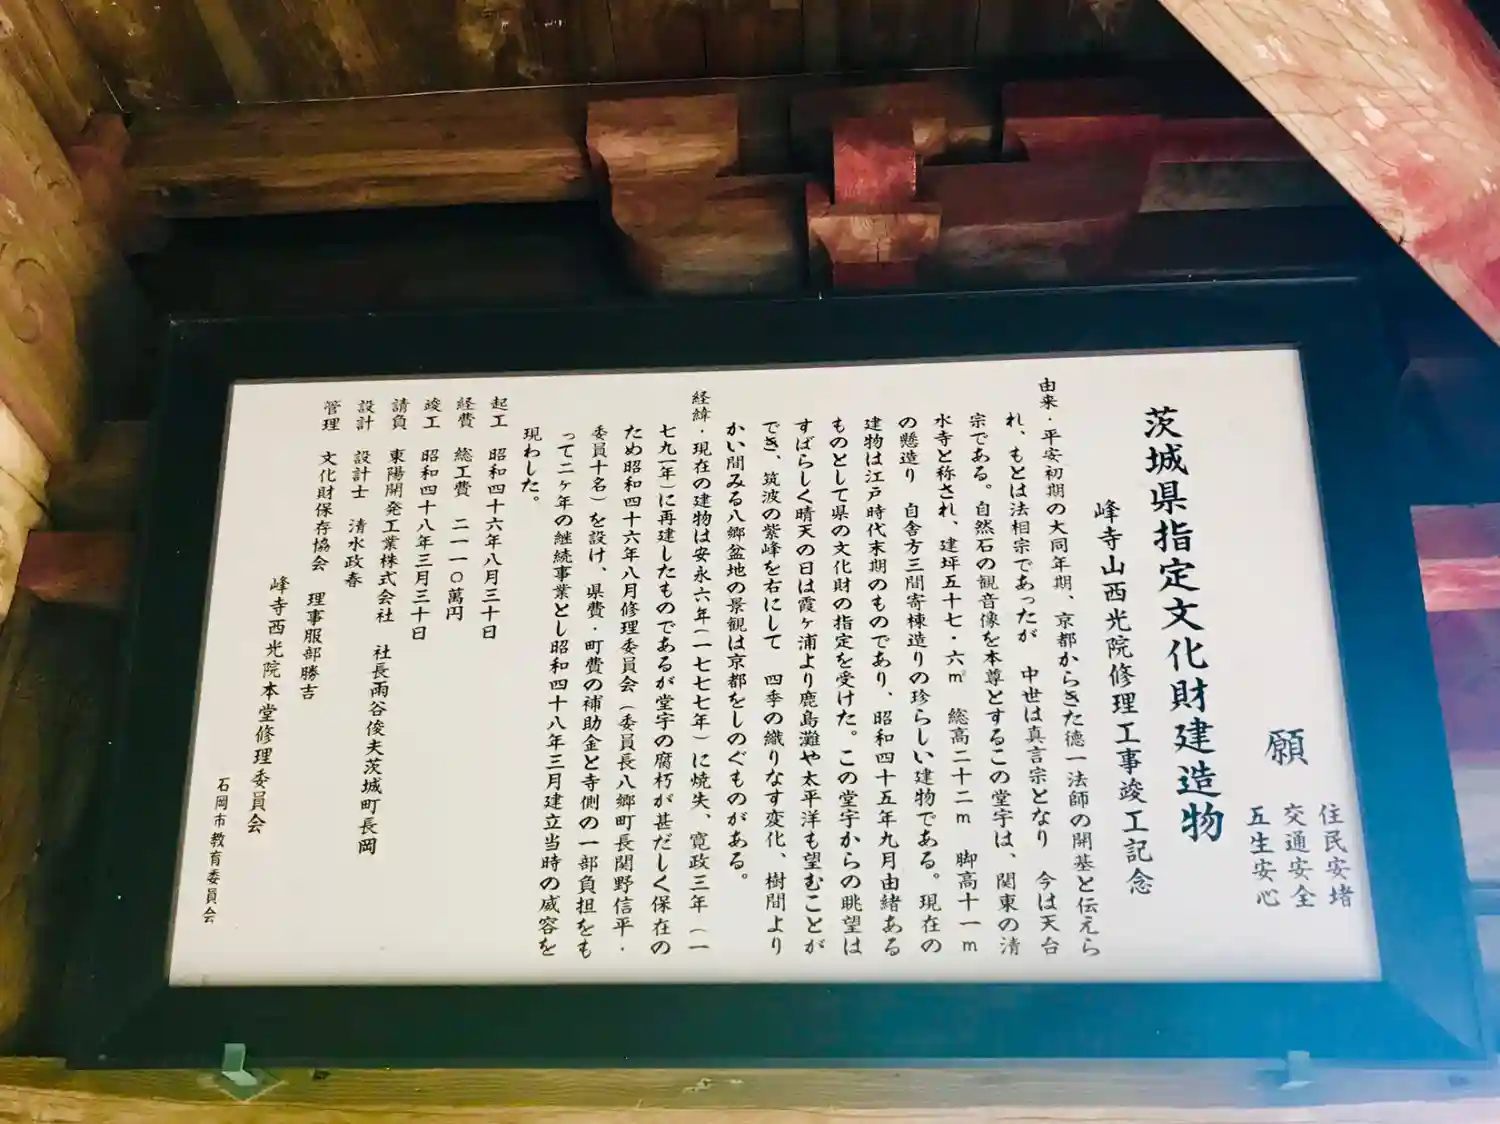 住民安堵
願 交通安全
五生安心
茨城県指定文化財建造物
峰寺山西光院修理工事竣工記念
由来・平安初期の大同年期、京都からきた徳一法師の開基と伝えら
れ、もとは法相宗であったが 中世は真言宗となり 今は天台
宗である。自然石の観音像を本尊とするこの堂宇は、関東の清
水寺と称され、建坪五十七・六㎡ 総高二十二m 脚高十一m
の懸造り 自舎方三間寄棟造りの珍らしい建物である。現在の
建物は江戸時代末期のものであり、昭和四十五年九月由緒ある
ものとして県の文化財の指定を受けた。この堂宇からの眺望は
すばらしく晴天の日は霞ヶ浦より鹿島灘や太平洋も望むことが
でき、筑波の紫峰を右にして 四季の織りなす変化、樹間より
かい間みる八郷盆地の景観は京都をしのぐものがある。
経緯・現在の建物は安永六年(一七七七年)に焼失、寛政三年(一
七九一年)に再建したものであるが堂宇の腐朽が甚だしく保在の
ため昭和四十六年八月修理委員会(委員長八郷町長関野信平・
委員十名)を設け、県費・町費の補助金と寺側の一部負担をも
って二ヶ年の継続事業とし昭和四十八年三月建立当時の威容を
現わした。
起工 昭和四十六年八月三十日
経費 総工費 二一一〇萬円
竣工 昭和四十八年三月三十日
請負 東陽開発工業株式会社 社長雨谷俊夫茨城町長岡
設計 設計士 清水政春
管理 文化財保存協会 理事服部勝吉
峰寺西光院本堂修理委員会
石岡市教育委員会